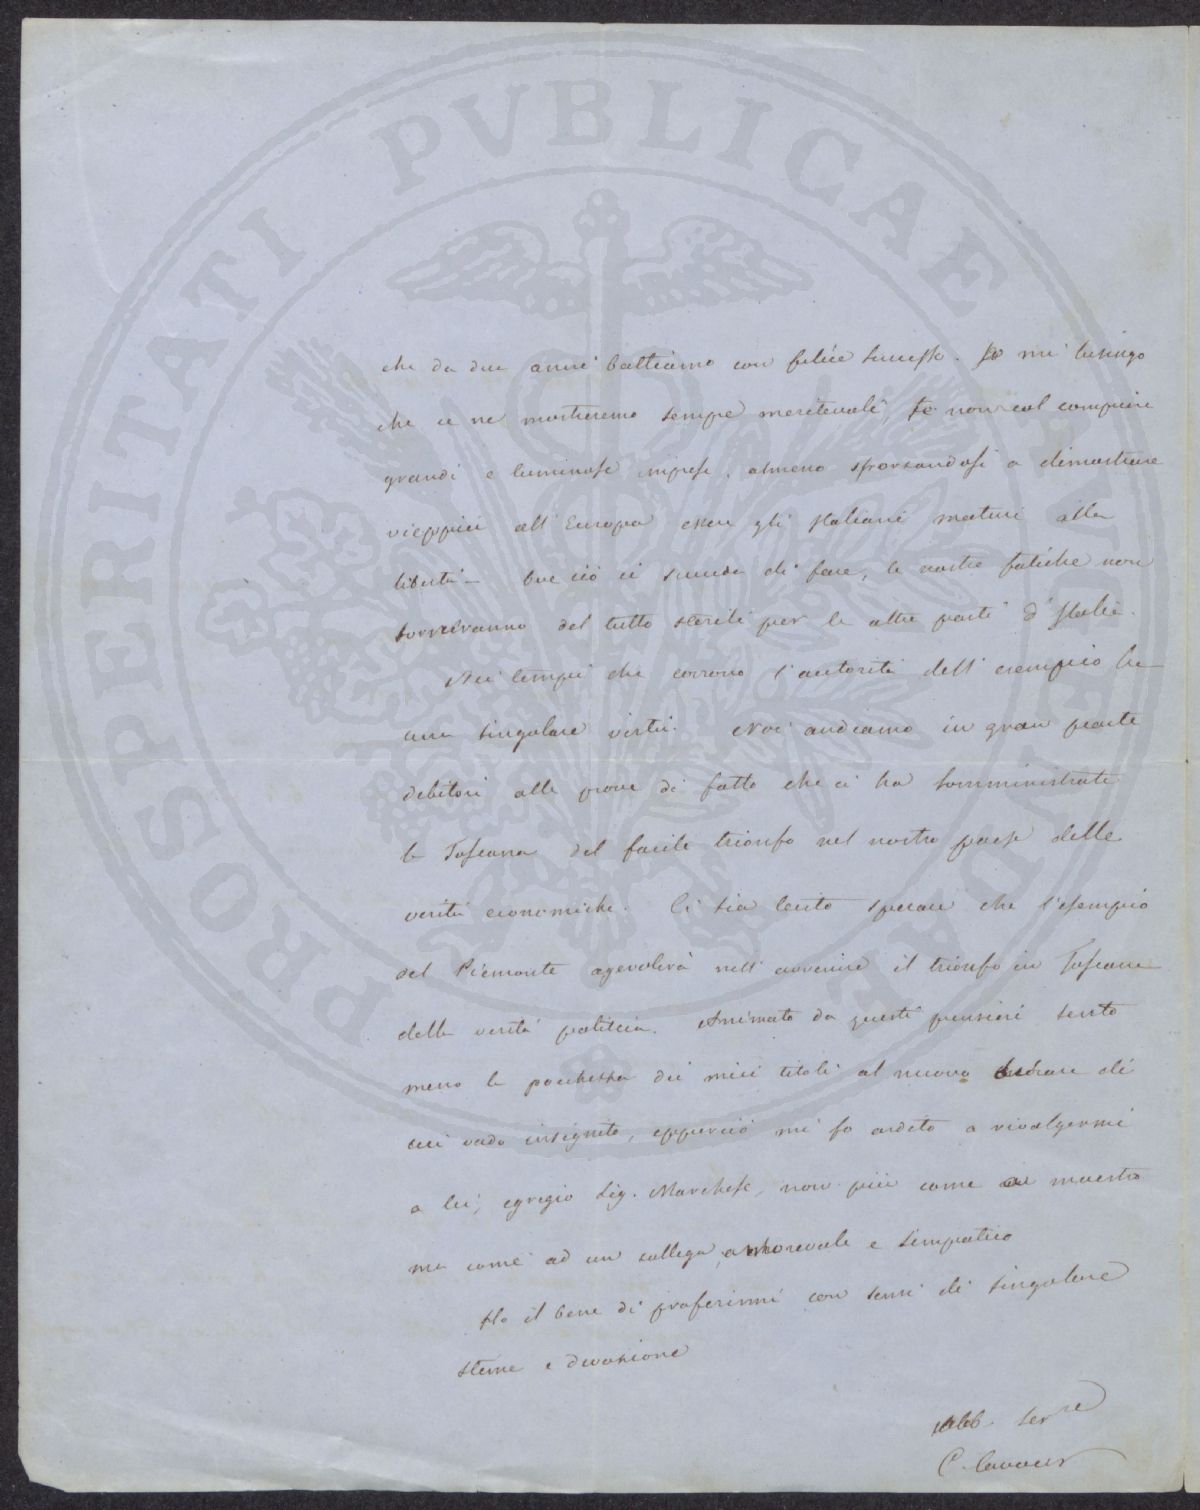 PROSPERITATI PVBLICAE AVGENDAE
che da due anni battiamo con felice successo. Io mi lusingo
che ce ne mostreremo sempre meritevoli, se non col compiere
grandi e luminose imprese, almeno sforzandosi a dimostrare
vieppiù all'Europa essere gli Italiani maturi alla
libertà – Ove ciò ci succeda di fare, le nostre fatiche non
torneranno del tutto sterili per le altre parti d'Italia.
Nei tempi che corrono l'autorità dell'esempio ha
una singolare virtù. Noi andiamo in gran parte
debitori alle prove di fatto che ci ha somministrate
la Toscana del facile trionfo nel nostro paese delle
verità economiche. Ci sia lecito sperare che l'esempio
del Piemonte agevolerà nell'avvenire il trionfo in Toscana
della verità politica. Animato da questi pensieri sento
meno la pochezza dei miei titoli al nuovo onore di
cui vado insignito, epperciò mi fo ardito a rivolgermi
a lei, egregio Sig. Marchese, non più come a maestro
ma come ad un collega amorevole e simpatico
Ho il bene di proferirmi con sensi di singolare
stima e devozione
Obb. Ser.re
C. Cavour